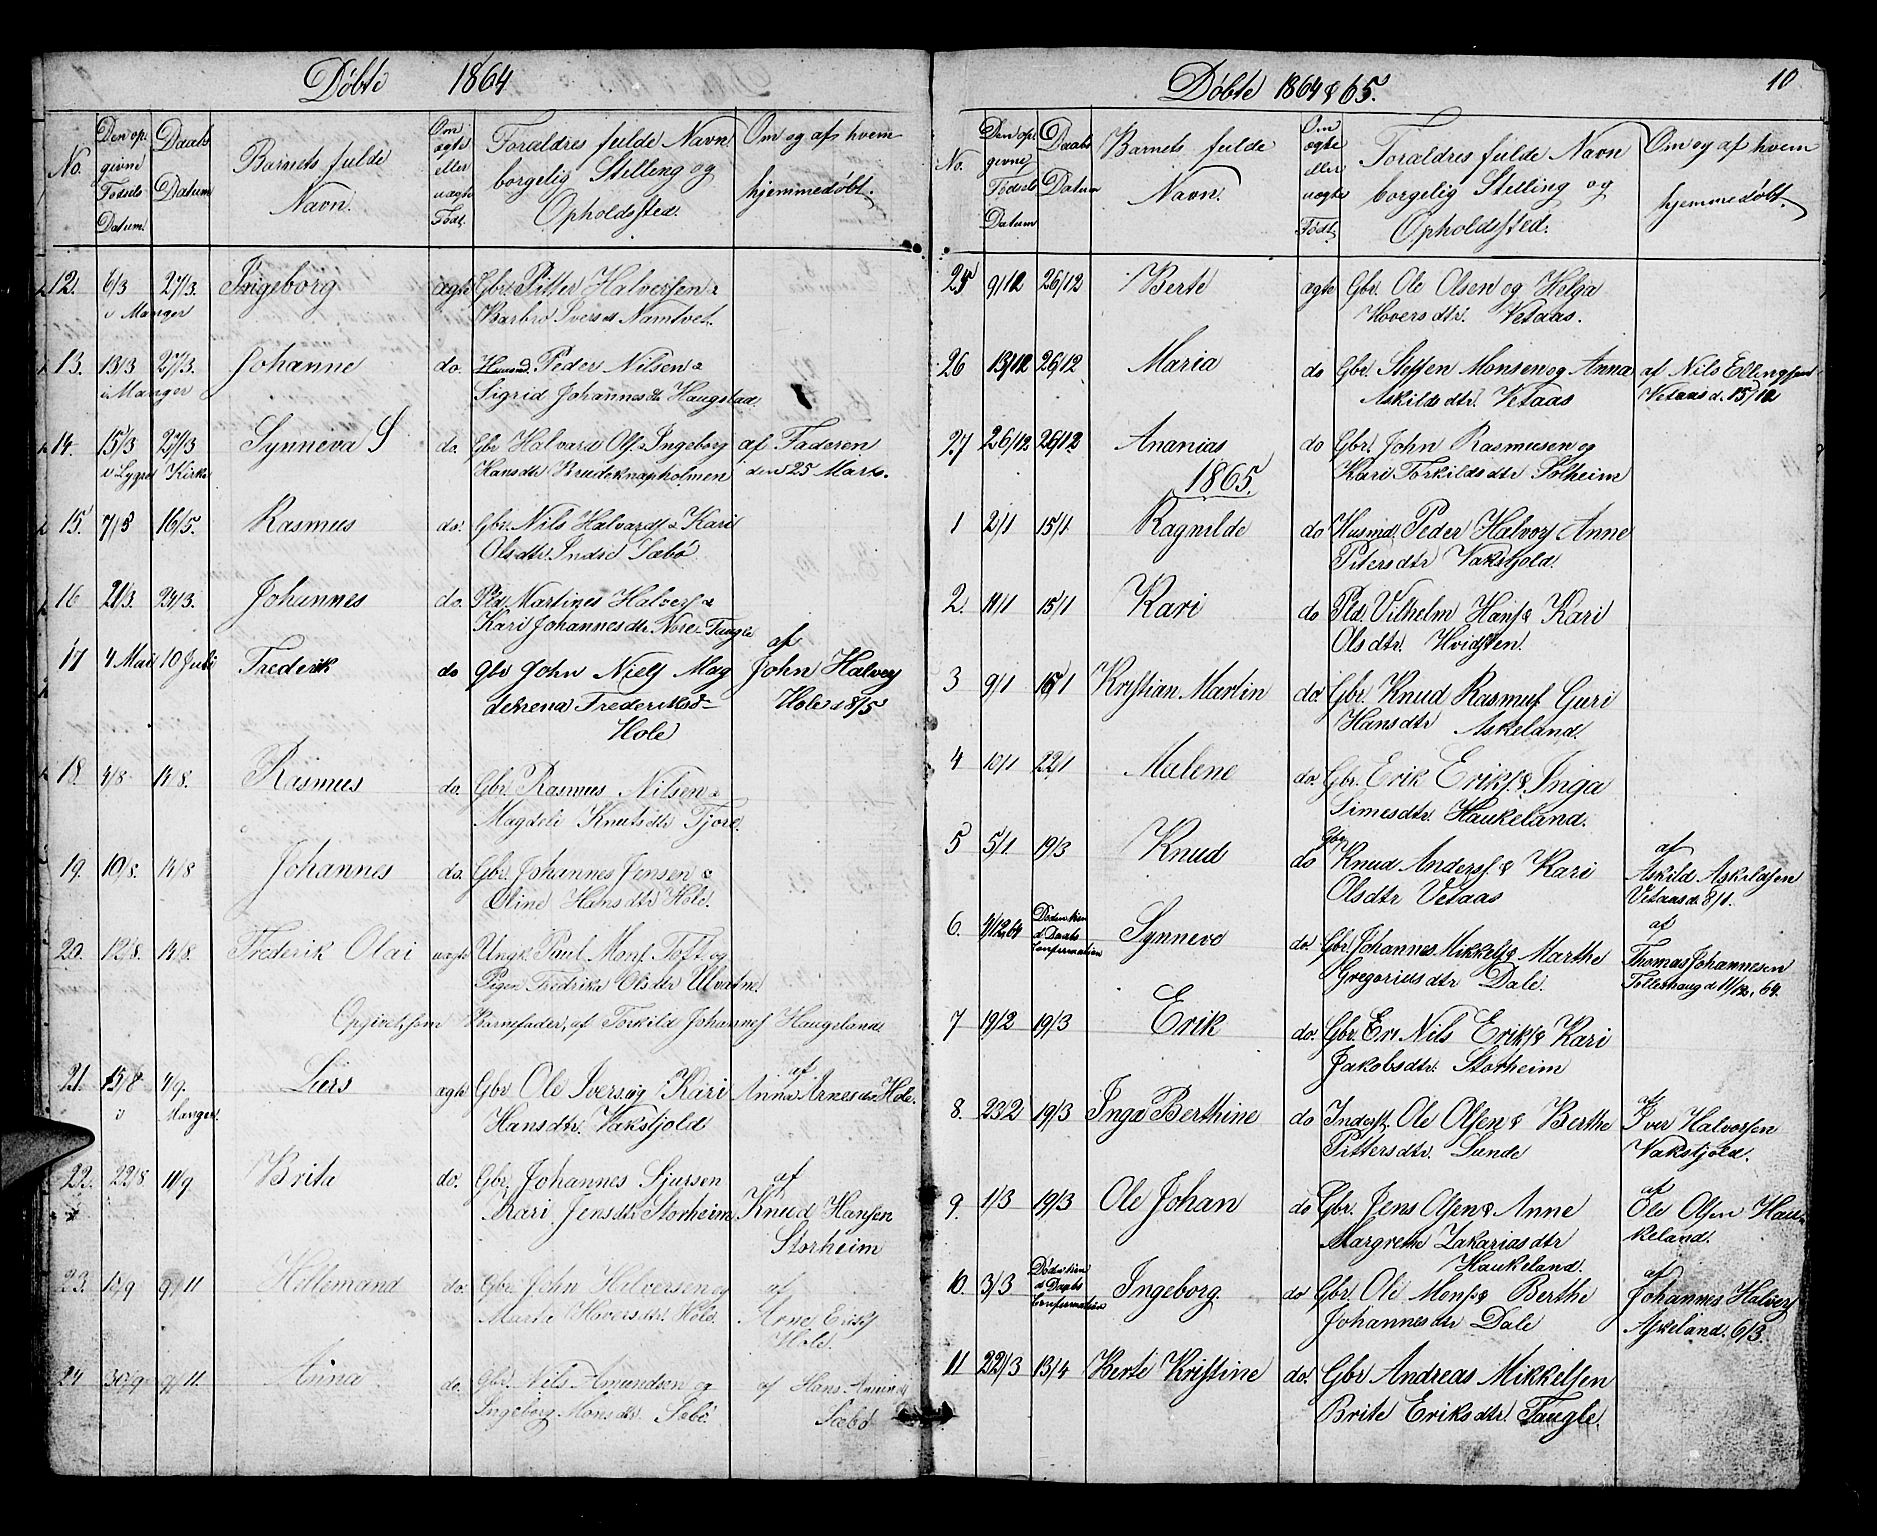 Døbte 1864
No.
Den op-
givne
Fødsels
Datum.
Daabs
Datum
Barnets fulde
Navn.
Om
ægte
eller
uægte
Født.
Forældres fulde Navn
borgelig Stilling og
Opholdssted.
Om og af hvem
hjemmedøbt.
12. 6/3 27/3. Ingeborg ægte Gbr. Pitter Halversen &
i Manger Barbro Iversd Namtvet.
13. 13/3 27/3. Johanne do. Husmd. Peder Nilsen &
i Manger Sigrid Johannesdtr Haugstad.
14. 15/3 27/3 Synneva S do. Gbr Halvard Ols. Ingeborg af Faderen
i Lygre Kirke Hansdtr Brudeknapholmen den 25 Marts.
15. 7/3 16/5. Rasmus do. Gbr. Nils Halvards. & Kari
Olsdtr. Indre Sæbø.
16 21/3. 24/3. Johannes do. Pld. Martines Halvers. &
Kari Johannesdtr Nore-Taugle
17 4 Mai 10 Juli Frederik do Gbr John Niels. Mag
af John Halvers
delrena Frederiksd-
Hole d 8/5
Hole
18. 4/8 14/8. Rasmus do. Gbr. Rasmus Nilsen &
Magdeli Knutsdtr Fjore.
19. 10/8. 14/8 Johannes do. Gbr. Johannes Jensen &
Oline Hansdtr Hole.
20. 12/8. 14/8. Frederik Olai uægte Ungk. Paul Mons. Toft og
Pigen Fredrika Olsdtr Ulvatne.
Opgivet, som Barnefader, af Torkild Johannes. Haugeland
21. 15/8 4/9. Lars ægte Gbr. Ole Ivers. og Kari
af
i Manger. Hansdtr. Vakstjold
Anna Arnesdtr Hole.
22. 22/8 11/9 Brita do. Gbr. Johannes Sjursen
af
Kari Jensdtr Storheim Knud Hansen
Storheim
23. 15/9 9/11 Hallemand do. Gbr. John Halversen og
af
Marta Hoversdtr. Hole. Arne Eriks.
Hole.
24 30/9 9/11. Anna do. Gbr. Nils Amundsen og
af Hans Amunds
Ingeborg Monsdtr. Sæbø.
Sæbø
Døbte 1864 & 65. 10
No.
Den op-
givne
Fødsels
Datum
Daabs
Datum
Barnets fulde
Navn.
Om
ægte
eller
uægte
Født.
Forældres fulde Navn
borgelig Stilling og
Opholdssted.
Om og af hvem
hjemmedøbt.
25 9/12 26/12 Berte ægte Gbr. Ole Olsen og Helga
Hoversdtr. Vetaas.
26 13/12 26/12 Maria do Gbr. Steffen Monsen og Anna af Nils Ellingsen
Askildsdtr. Vetaas Vetaas d. 15/12
27 26/12 26/12 Ananias do Gbr. John Rasmusen og
Kari Torkildsdtr Solheim
1865.
1 2/1 15/1 Ragnilde do Husmd. Peder Halvors. Anne
Pitersdtr Vakstjold.
2. 11/1 15/1 Kari do Pld. Vilhelm Hans. & Kari
Olsdtr. Hvidsten.
3 9/1 15/1 Kristian Martin do. Gbr. Knud Rasmus. Guri
Hansdtr. Askeland.
4 10/1 22/1 Malene do. Gbr. Erik Eriks. & Inga
Simesdtr. Haukeland.
5 5/1 19/3 Knud do Gbr. Knud Anders. & Kari
Olsdtr Vetaas
af
Askild Askildsen
Vetaas d. 8/1.
6. 4/12,64 Døden kien
d Daabs
Confirmation
Synnevo do. Gbr. Johannes Mikkels. & Marthe
Gregoriusdtr Dale.
af
Thomas Johannesen
Tolleshaug d 11/12, 64.
7 19/2 19/3 Erik do. Gbr. Er. Nils Eriks. & Kari
Jakobsdtr. Storheim
8. 23/2 19/3 Inga Berthine do Inderst. Ole Olsen & Berthe
Pittersdtr. Lunde
af
Iver Halvorsen
Vakstjold.
9. 1/3 19/3 Ole Johan do Gbr. Jens Olsen & Anne
Margrethe Zakariasdtr
Haukeland.
af
Ole Olsen Hau-
keland.
10. 3/3 Døden kien
d Daabs
Confirmation
Ingeborg do Gbr. Ole Mons. & Berthe
Johannesdtr Dale
af
Johannes Halvers
Askeland. 6/3.
11 22/3 13/4 Berte Kristine do. Gbr Andreas Mikkelsen
Brite Eriksdtr. Taugle.